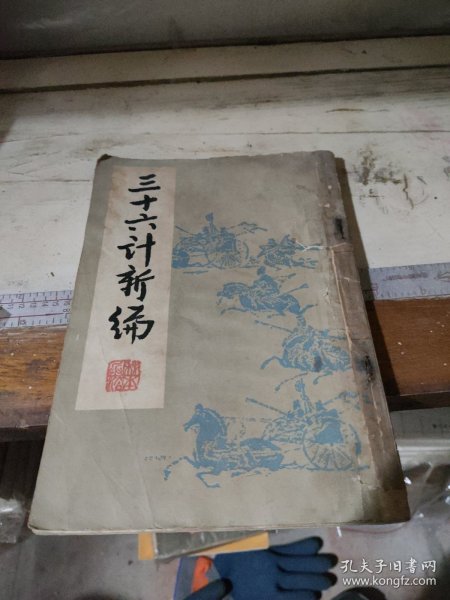 三十六计新编
孔夫子旧书网
www.kongfz.com